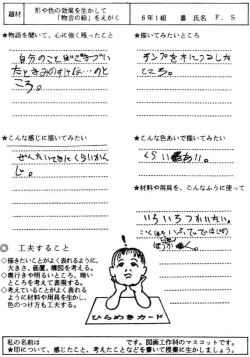 題材
形や色の効果を生かして
「物言の絵」をえがく
6年1組 番 氏名 F. S
★物語を聞いて、心に強く残ったこと
自分のことばできづい
たときみのすけは…のと
ころ。
★描いてみたいところ
ところ。
★こんな感じに描いてみたい
ぜんたいてきにくらいかん
じ。
★こんな色あいで描いてみたい
くらい
★材料や用具を、こんなふうに使って
いろいろつかいたい。
◎ 工夫すること
○描きたいことがよく表れるように、
大きさ、配置、構図を考える。
○奥行きや明るいところ、暗い
ところを考えて表現する。
○考えていることがよく表れる
ように材料や用具を生かし、
色のつけ方も工夫する。
ひらめきカード
私の名前は です。図画工作科のマスコットです。
★印について、感じたこと、考えたことなどを書いて授業に生かしましょう。